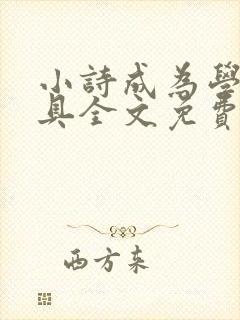 小詩成為學
具全文免費
西方来